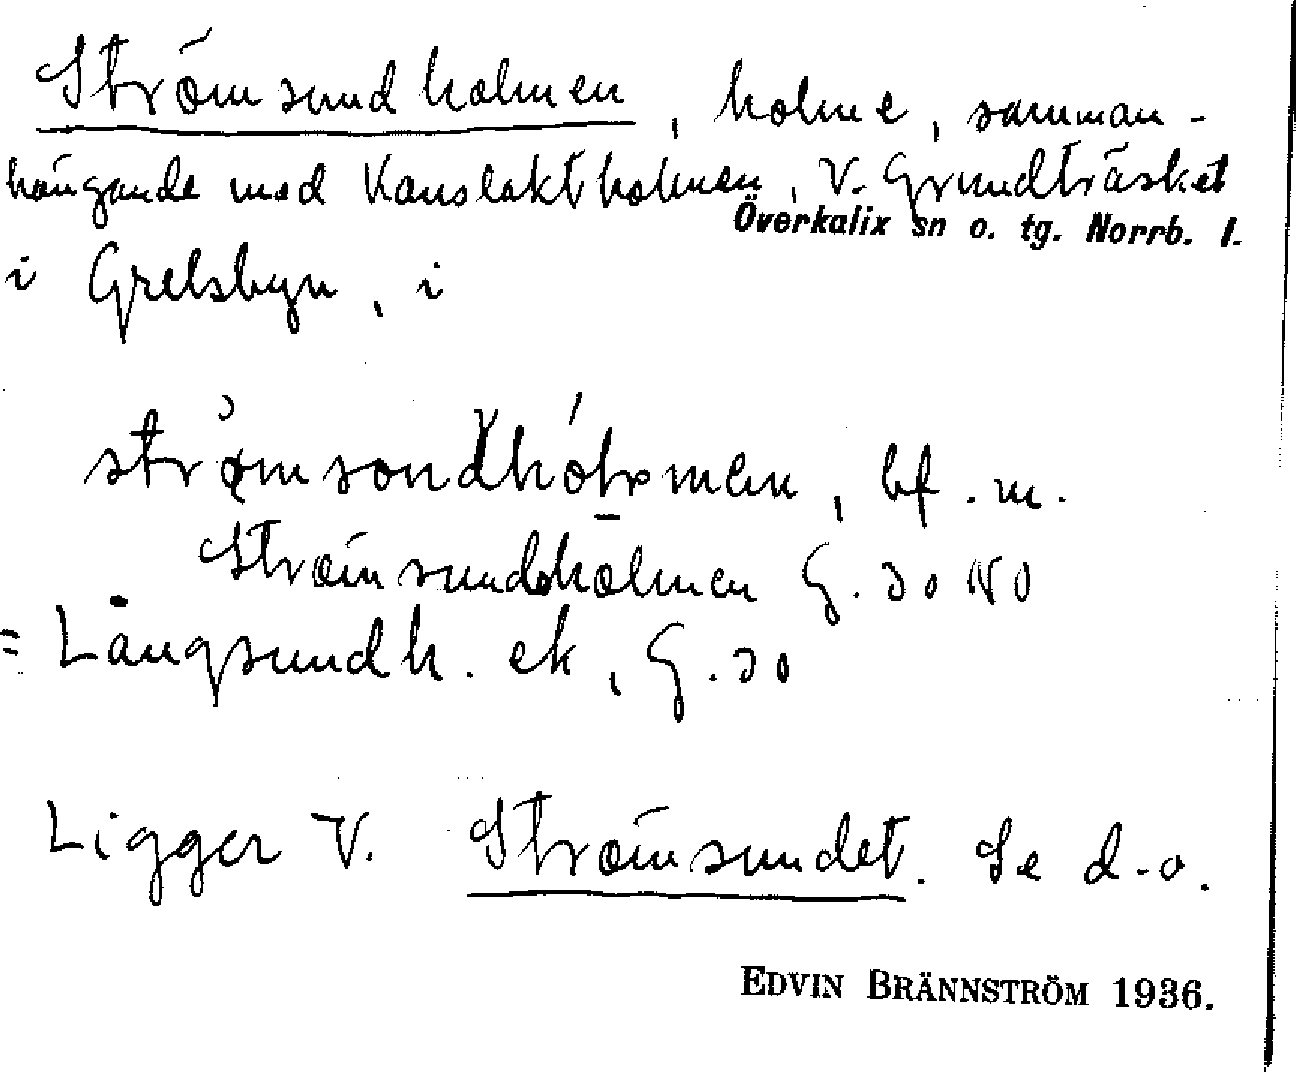 Strömsundholmen, holme, samman-
hängande med Kanslaktholmen, V. Grundträsket
Överkalix sn o. tg. Norrb. l.
i Grelsbyn, i
bf. m.
Strömsundsholmen G. 30 NO
= Långsundh. ek, G. 30
Ligger V. Strömsundet. Se d.o.
EDVIN BRÄNNSTRÖM 1936.